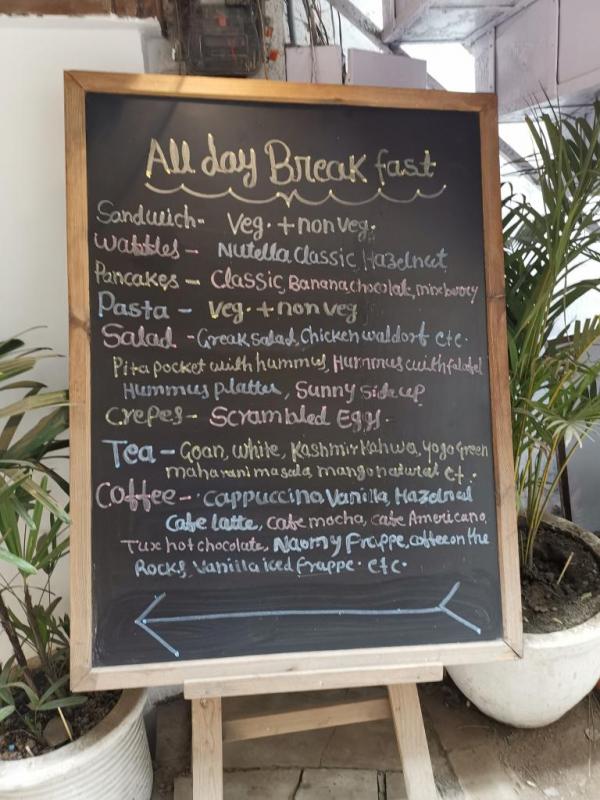 All day Breakfast
Sandwich- Veg. + non veg.
Wabbles - Nutella Classic, Hazelnut
Pancakes - Classic, Banana chocolate, mix beory
Pasta - Veg. + non veg
Salad - Greak salad, Chicken waldorf etc.
Pita pocket with hummus, Hummus with falafel
Hummus platter, Sunny side up
Crepes- Scrambled Eggs.
Tea - Goan, white, Kashmir Kahwa, yogo green
maharani masala, mango natural et.
Coffee - cappuccino, Vanilla, Hazelnut
Cafe latte, cafe mocha, cafe Americano,
Tux hot chocolate, Naomy Frappe, coffee on the
Rocks, Vanilla iced frappe. etc.